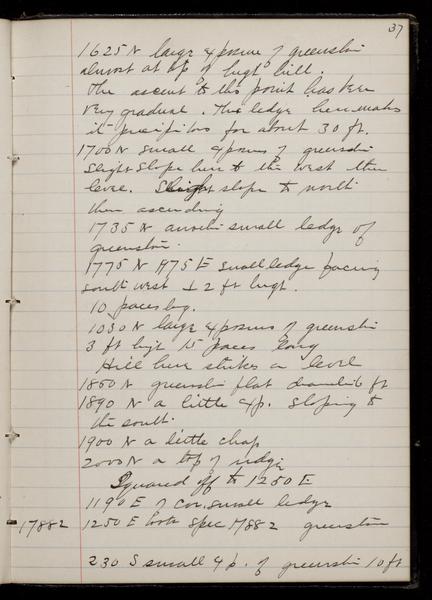 37
1625 N large exposure of greenstone
almost at top of high hill.
The ascent to this point has been
very gradual. The ledge here makes
it precipitous for about 30 ft.
1700 N small exposure of greenstone
Slight slope here to the west then
level. Slight slope to north
then ascending
1735 N another small ledge of
greenstone.
1775 N 1175 E small ledge facing
south west 2 ft high.
10 paces long.
1030 N large exposure of greenstone
3 ft high 15 paces long
Hill here strikes a level
1860 N greenstone flat ft
1890 N a little exp. sloping to
the south.
1900 N a little
2000 N a top of ridge
Squared off to 1250 E
1190 E of cor. small ledge
17882 1250 E took spec 17882 greenstone
230 S small exp. of greenstone 10 ft